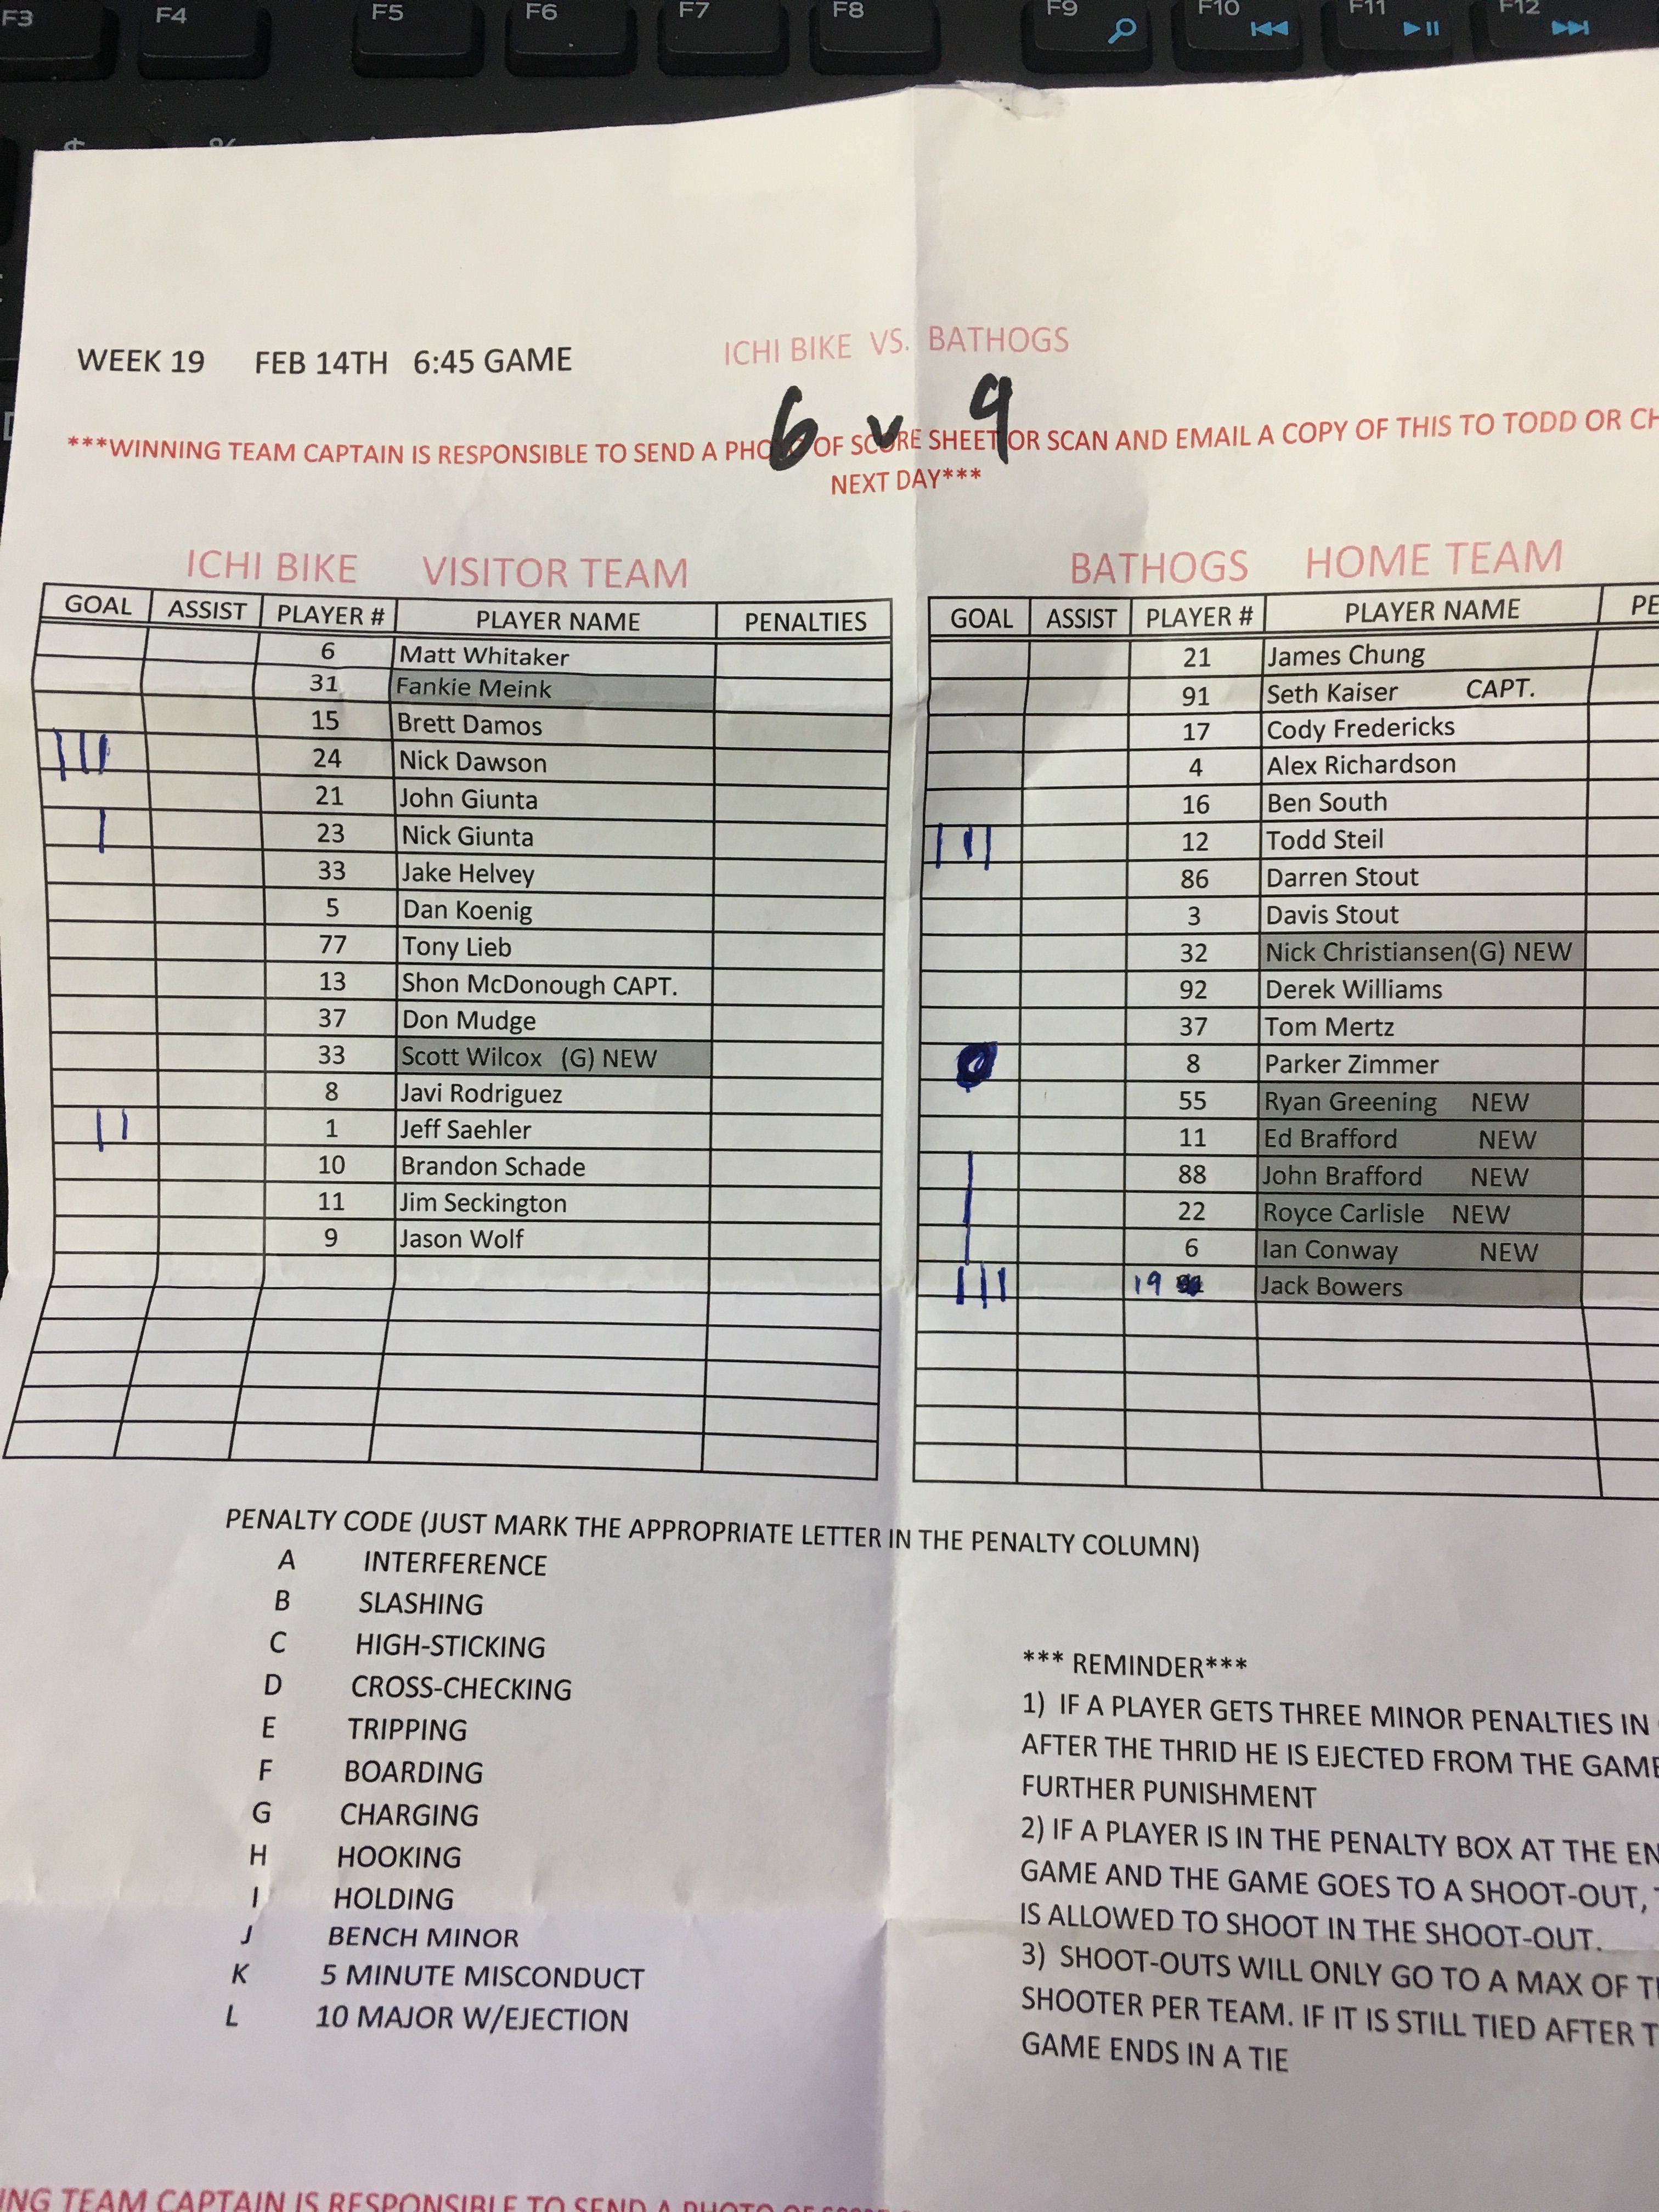 F3 F4 F5 F6 F7 F8 F9 F10 F11 F12
$ %
WEEK 19 FEB 14TH 6:45 GAME ICHI BIKE VS. BATHOGS
6 v 9
***WINNING TEAM CAPTAIN IS RESPONSIBLE TO SEND A PHOTO OF SCORE SHEET OR SCAN AND EMAIL A COPY OF THIS TO TODD OR CH
NEXT DAY***
ICHI BIKE VISITOR TEAM
GOAL ASSIST PLAYER # PLAYER NAME PENALTIES
6 Matt Whitaker
31 Fankie Meink
15 Brett Damos
III 24 Nick Dawson
21 John Giunta
I 23 Nick Giunta
33 Jake Helvey
5 Dan Koenig
77 Tony Lieb
13 Shon McDonough CAPT.
37 Don Mudge
33 Scott Wilcox (G) NEW
8 Javi Rodriguez
II 1 Jeff Saehler
10 Brandon Schade
11 Jim Seckington
9 Jason Wolf
BATHOGS HOME TEAM
GOAL ASSIST PLAYER # PLAYER NAME PE
21 James Chung
91 Seth Kaiser CAPT.
17 Cody Fredericks
4 Alex Richardson
16 Ben South
III 12 Todd Steil
86 Darren Stout
3 Davis Stout
32 Nick Christiansen(G) NEW
92 Derek Williams
37 Tom Mertz
8 Parker Zimmer
55 Ryan Greening NEW
11 Ed Brafford NEW
I 88 John Brafford NEW
I 22 Royce Carlisle NEW
I 6 Ian Conway NEW
III 19 Jack Bowers
PENALTY CODE (JUST MARK THE APPROPRIATE LETTER IN THE PENALTY COLUMN)
A INTERFERENCE
B SLASHING
C HIGH-STICKING
D CROSS-CHECKING
E TRIPPING
F BOARDING
G CHARGING
H HOOKING
I HOLDING
J BENCH MINOR
K 5 MINUTE MISCONDUCT
L 10 MAJOR W/EJECTION
*** REMINDER***
1) IF A PLAYER GETS THREE MINOR PENALTIES IN
AFTER THE THRID HE IS EJECTED FROM THE GAME
FURTHER PUNISHMENT
2) IF A PLAYER IS IN THE PENALTY BOX AT THE EN
GAME AND THE GAME GOES TO A SHOOT-OUT,
IS ALLOWED TO SHOOT IN THE SHOOT-OUT.
3) SHOOT-OUTS WILL ONLY GO TO A MAX OF
SHOOTER PER TEAM. IF IT IS STILL TIED AFTER
GAME ENDS IN A TIE
ING TEAM CAPTAIN IS RESPONSIBLE TO SEND A PHOTO OF